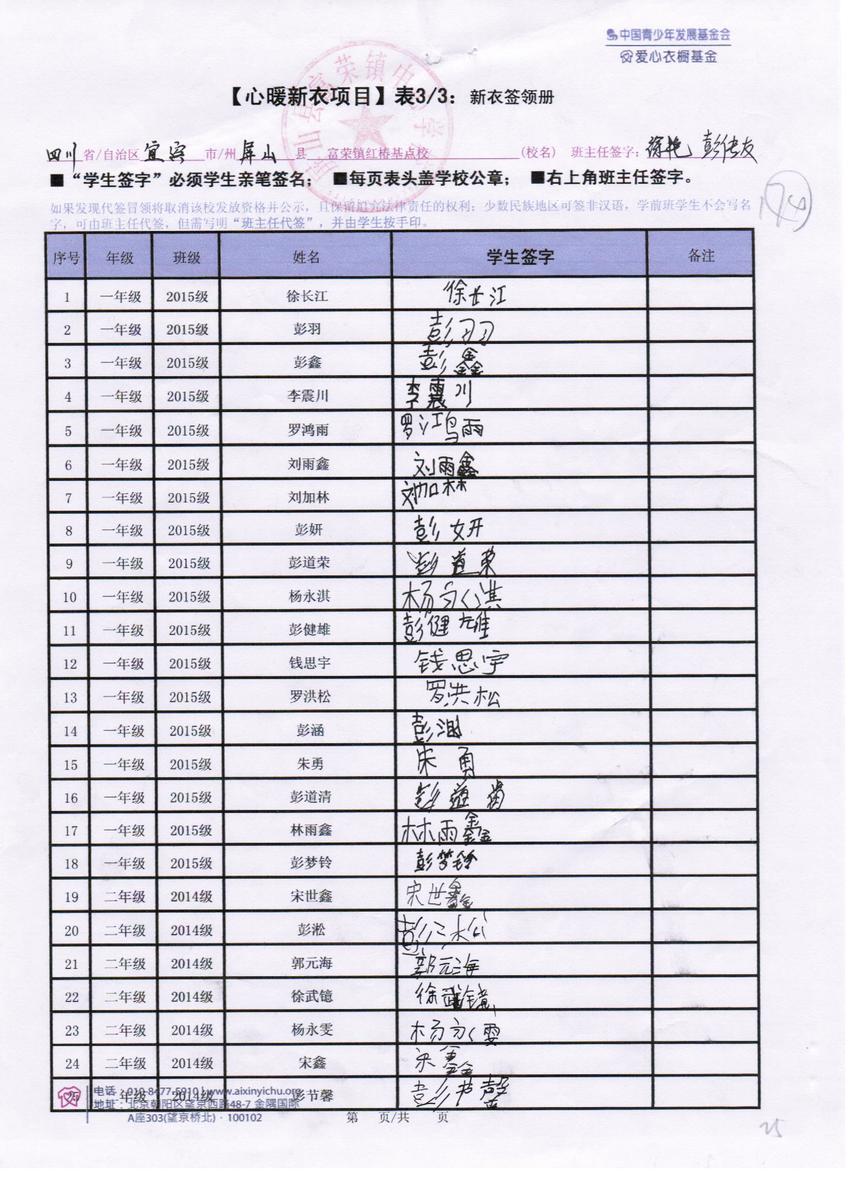 中国青少年发展基金会
爱心衣橱基金
【心暖新衣项目】表3/3：新衣签领册
四川省/自治区 宜宾 市/州 屏山 县 富荣镇红椿基点校 (校名) 班主任签字：徐艳 彭传友
■“学生签字”必须学生亲笔签名； ■每页表头盖学校公章； ■右上角班主任签字。
如果发现代签冒领将取消该校发放资格并公示，且保留追究法律责任的权利；少数民族地区可签非汉语，学前班学生不会写名
字，可由班主任代签，但需写明“班主任代签”，并由学生按手印。
序号 年级 班级 姓名 学生签字 备注
1 一年级 2015级 徐长江 徐长江
2 一年级 2015级 彭羽 彭羽
3 一年级 2015级 彭鑫 彭鑫
4 一年级 2015级 李震川 李震川
5 一年级 2015级 罗鸿雨 罗鸿雨
6 一年级 2015级 刘雨鑫 刘雨鑫
7 一年级 2015级 刘加林 刘加林
8 一年级 2015级 彭妍 彭妍
9 一年级 2015级 彭道荣 彭道荣
10 一年级 2015级 杨永淇 杨永淇
11 一年级 2015级 彭健雄 彭健雄
12 一年级 2015级 钱思宇 钱思宇
13 一年级 2015级 罗洪松 罗洪松
14 一年级 2015级 彭涵 彭涵
15 一年级 2015级 朱勇 朱勇
16 一年级 2015级 彭道清 彭道清
17 一年级 2015级 林雨鑫 林雨鑫
18 一年级 2015级 彭梦铃 彭梦铃
19 二年级 2014级 宋世鑫 宋世鑫
20 二年级 2014级 彭淞 彭淞
21 二年级 2014级 郭元海 郭元海
22 二年级 2014级 徐武镱 徐武镱
23 二年级 2014级 杨永雯 杨永雯
24 二年级 2014级 宋鑫 宋鑫
25 二年级 2014级 彭节馨 彭节馨
电话：010-8477-5910 | www.aixinyichu.org
地址：北京朝阳区望京西路48-7 金隅国际
A座303(望京桥北)·100102 第 页/共 页
25